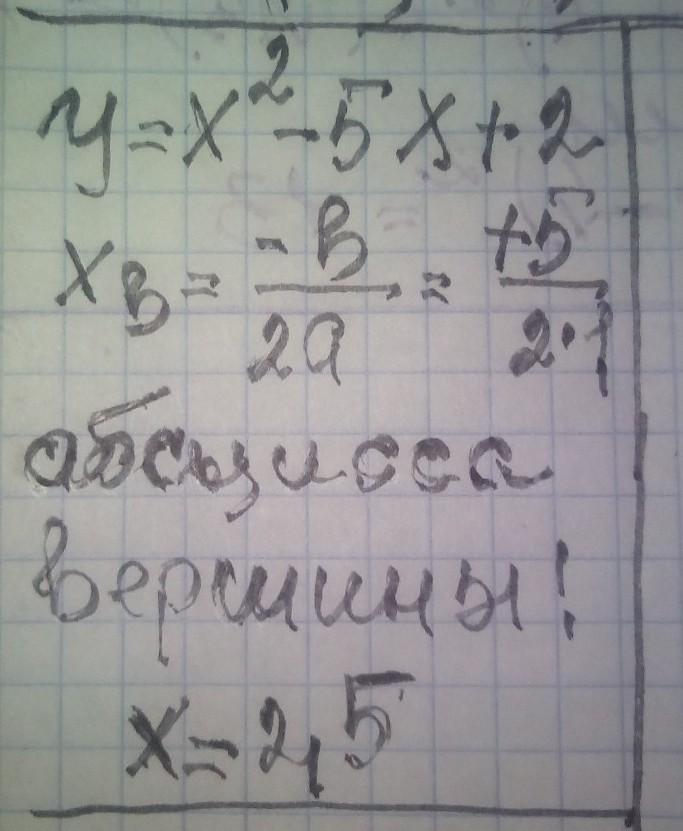 y = x² - 5x + 2
x_в = -в/2a = +5/2·1
абсцисса
вершины!
x = 2,5